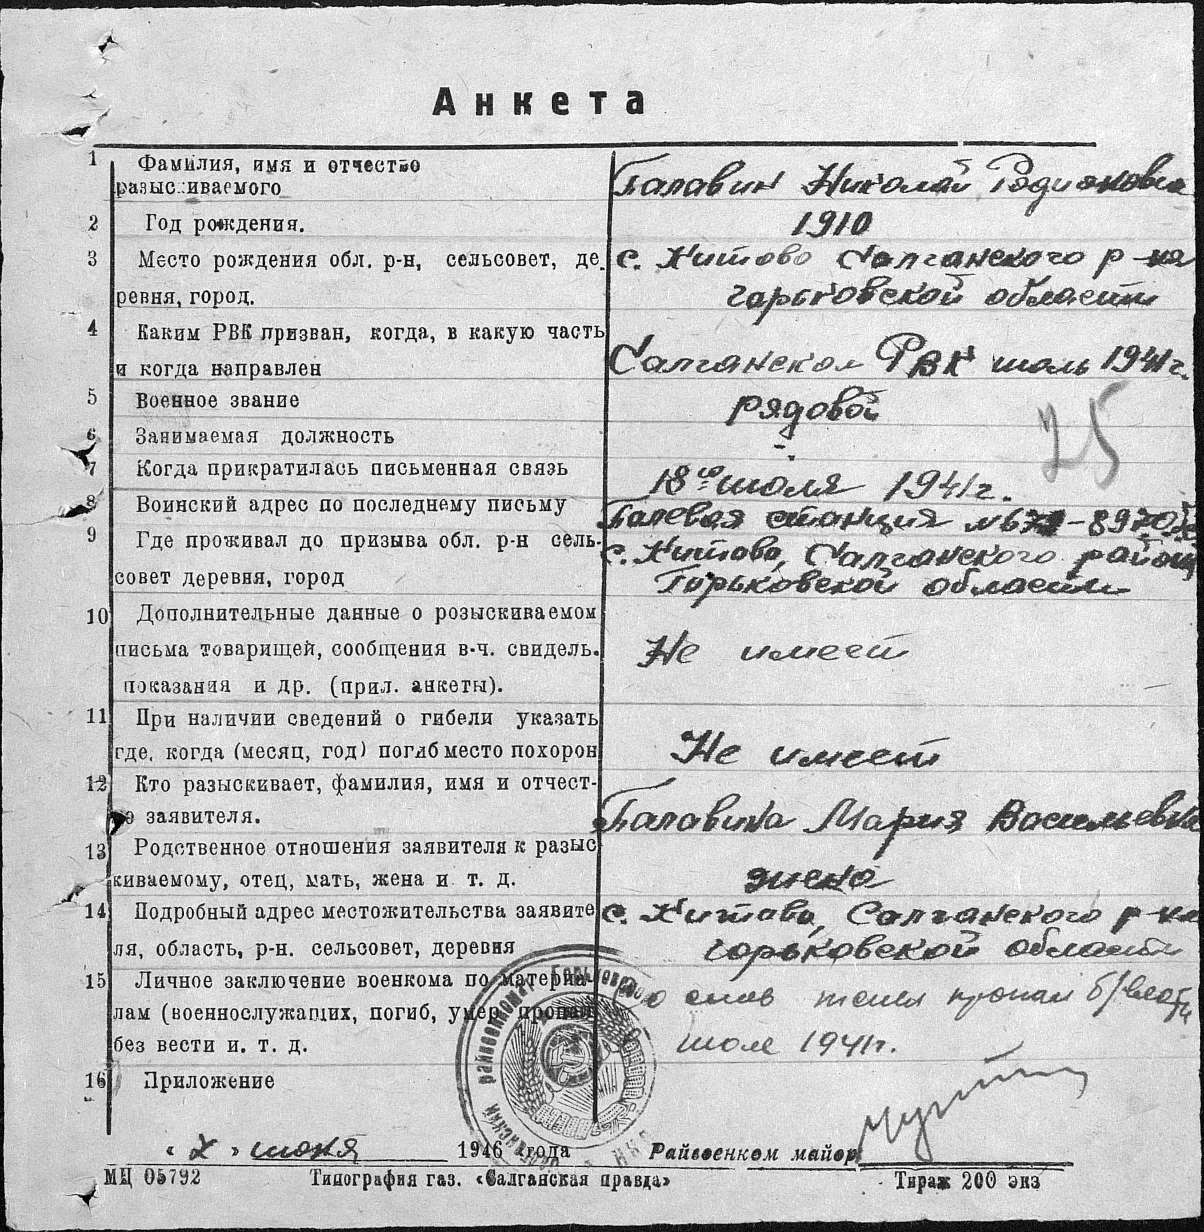 Анкета
1 Фамилия, имя и отчество
разыскиваемого
Балавин Николай Родионович
2 Год рождения.
1910
3 Место рождения обл. р-н, сельсовет, де-
ревня, город.
с. Китово Салганского р-на
горьковской области
4 Каким РВК призван, когда, в какую часть
и когда направлен
Салганском РВК июль 1941 г.
5 Военное звание
рядовой
25
6 Занимаемая должность
-"-
7 Когда прикратилась письменная связь
18го июля 1941 г.
8 Воинский адрес по последнему письму
Полевая станция
9 Где проживал до призыва обл. р-н сель-
совет деревня, город
с. Китово, Салганского района
Горьковской области
10 Дополнительные данные о розыскиваемом
письма товарищей, сообщения в-ч. свидель.
показания и др. (прил. анкеты).
Не имеет
11 При наличии сведений о гибели указать
где, когда (месяц, год) погиб место похорон
Не имеет
12 Кто разыскивает, фамилия, имя и отчест-
во заявителя.
Балавина Мария Васильевна
13 Родственное отношения заявителя к разыс
киваемому, отец, мать, жена и т. д.
жена
14 Подробный адрес местожительства заявите
ля, область, р-н. сельсовет, деревня
с. Китово, Салганского р-на
горьковской области
15 Личное заключение военкома по материа-
лам (военнослужащих, погиб, умер, пропал
без вести и. т. д.
пропал б/вести
июле 1941 г.
16 Приложение
июня 1946 года
Райвоенком майор
МЦ 05792 Типография газ. «Салганская правда» Тираж 200 экз